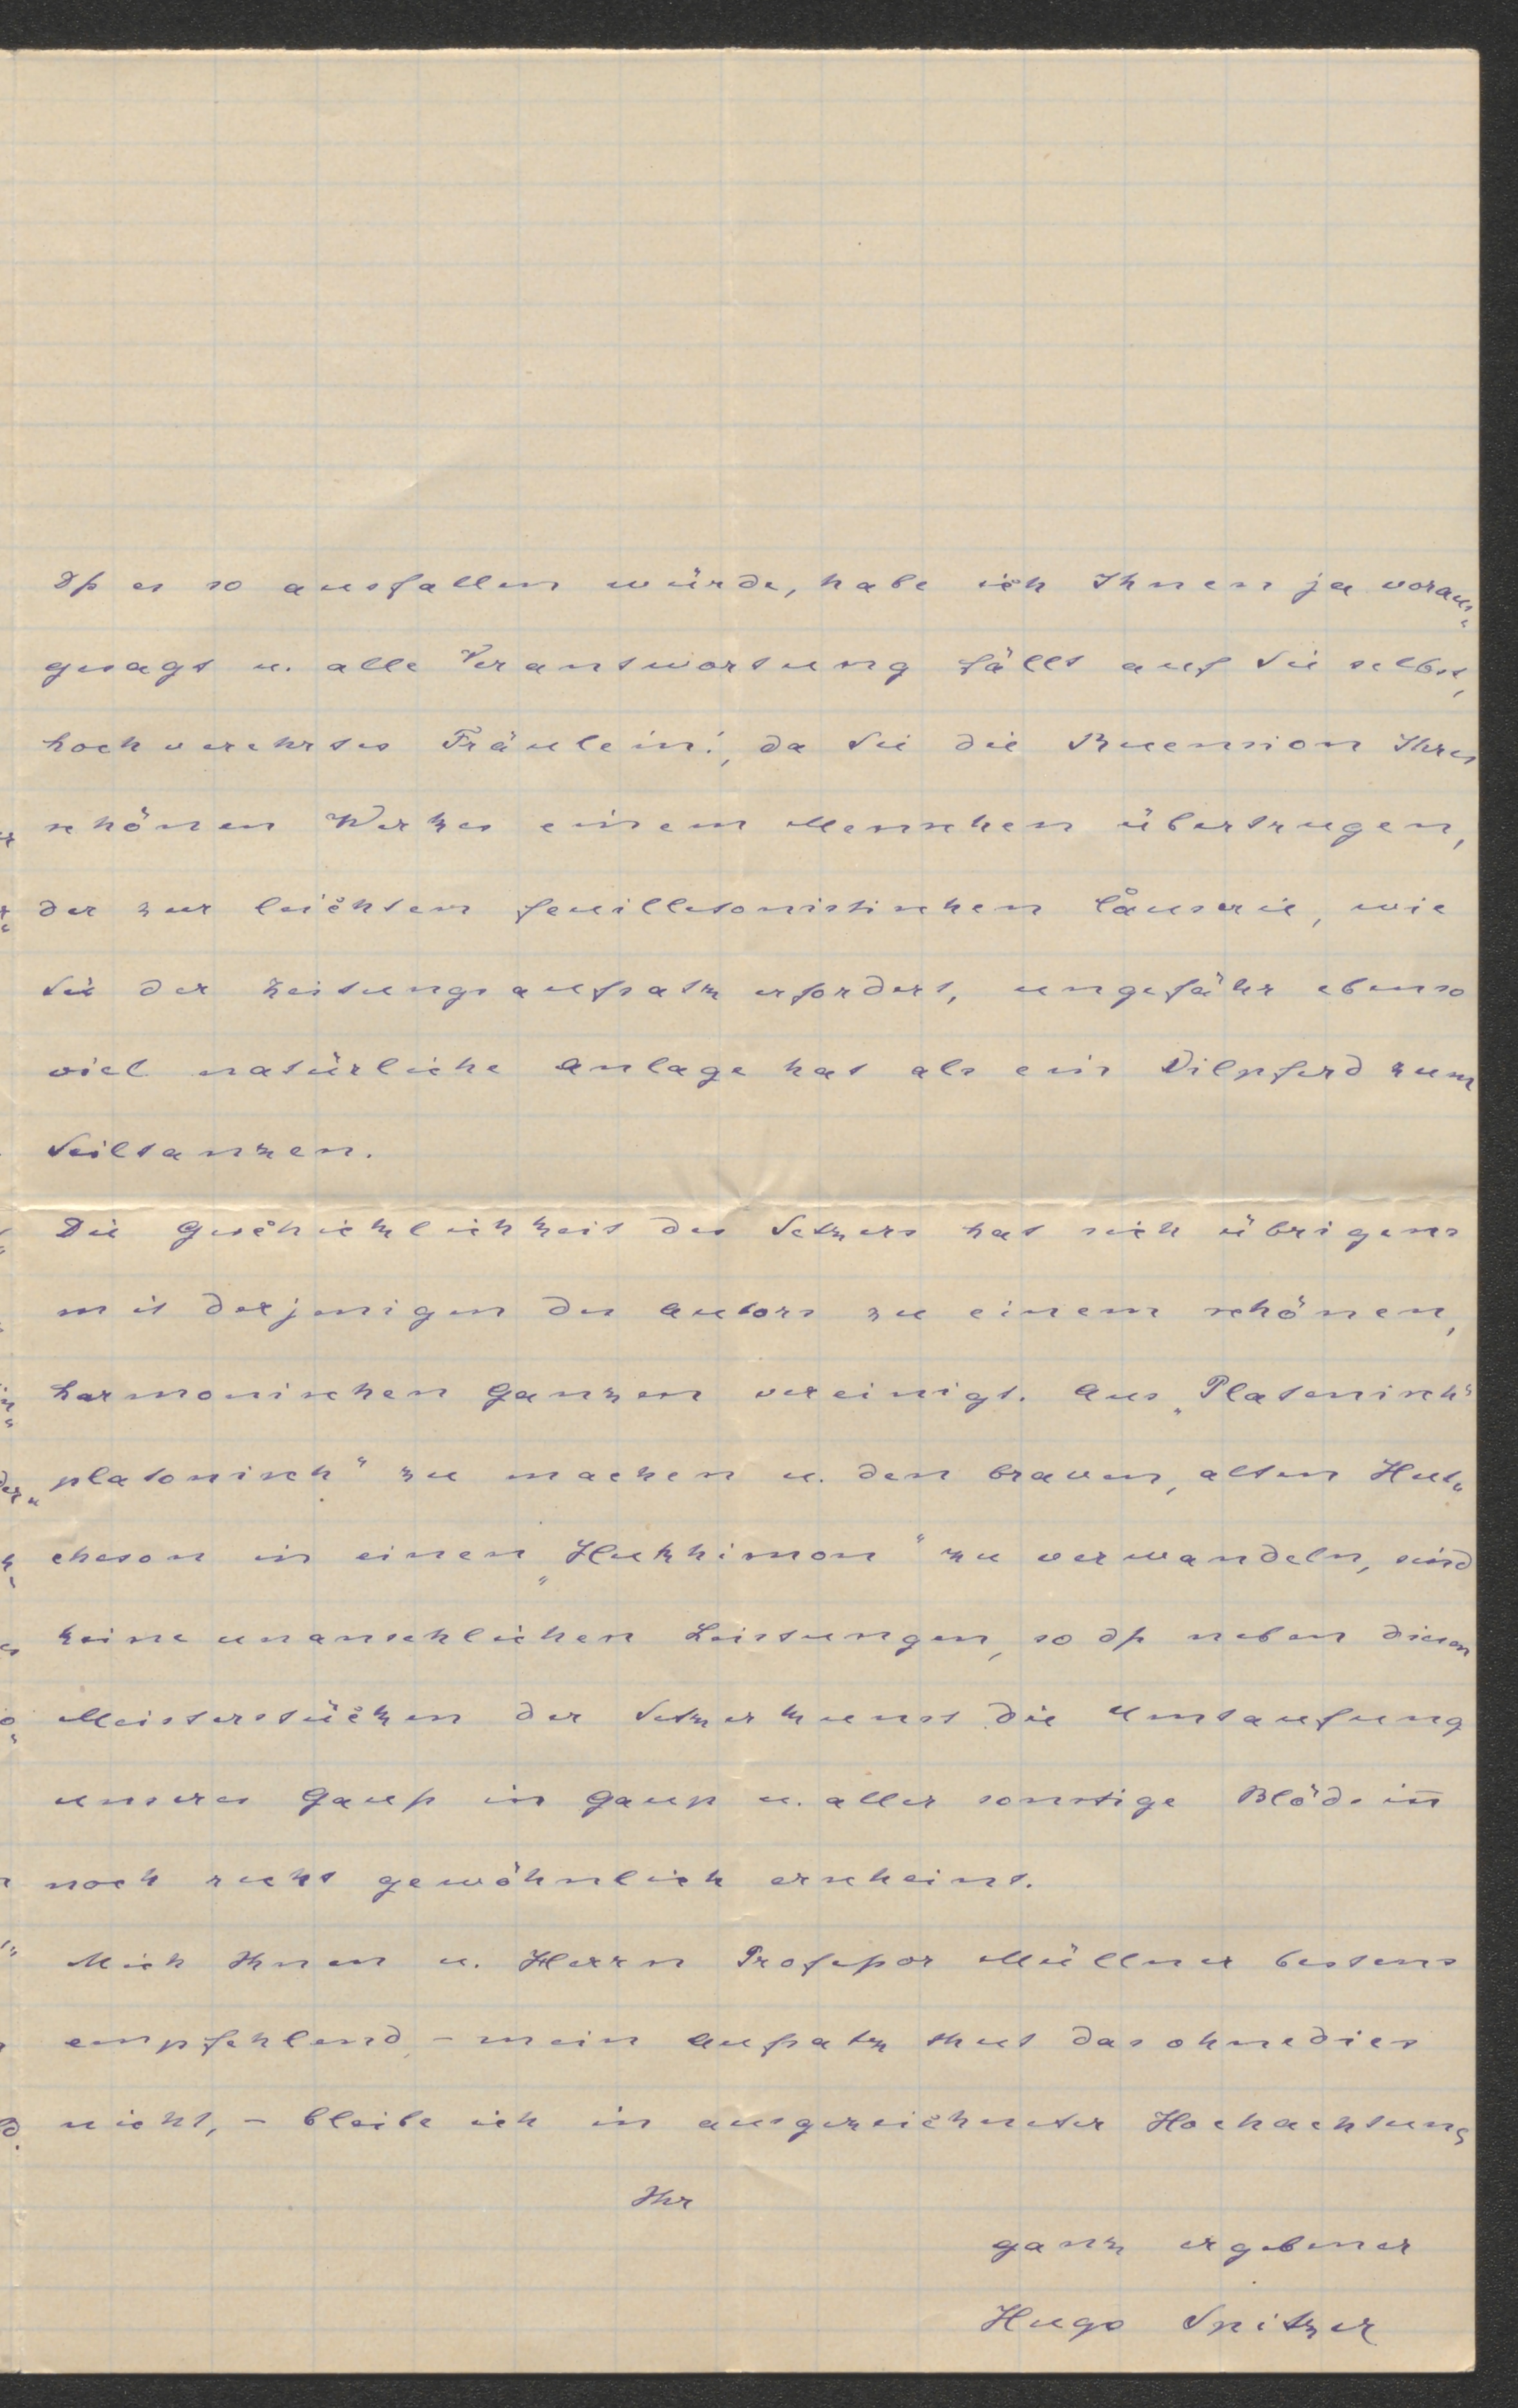 Dß es so ausfallen würde, habe ich Ihnen ja voraus„
gesagt u. alle Verantwortung fällt auf Sie selbst,
hochverehrtes Fräulein!, da Sie die Recension Ihres
schönen Werkes einem Menschen übertrugen,
der zur leichten feuilletonistischen Causerie, wie
sie der Zeitungsaufsatz erfordert, ungefähr ebenso
viel natürliche Anlage hat als ein Nilpferd zum
Seiltanzen.
Die Geschicklichkeit des Setzers hat sich übrigens
mit derjenigen des Autors zu einem schönen,
harmonischen Ganzen vereinigt. Aus „Platenisch“
„platonisch“ zu machen u. den braven, alten Hut„
cheson in einen „Hukhimon“ zu verwandeln, sind
keine unansehlichen Leistungen, so dß neben diesen
Meisterstücken der Setzerkunst die Umtaufung
unseres Gauß in Gaup u. aller sonstige Blödsin̄
noch recht gewöhnlich erscheint.
Mich Ihnen u. Herrn Profeßor Müllner bestens
empfehlend, – mein Aufsatz thut das ohnedies
nicht, – bleibe ich in ausgezeichneter Hochachtung
Ihr
ganz ergebener
Hugo Spitzer